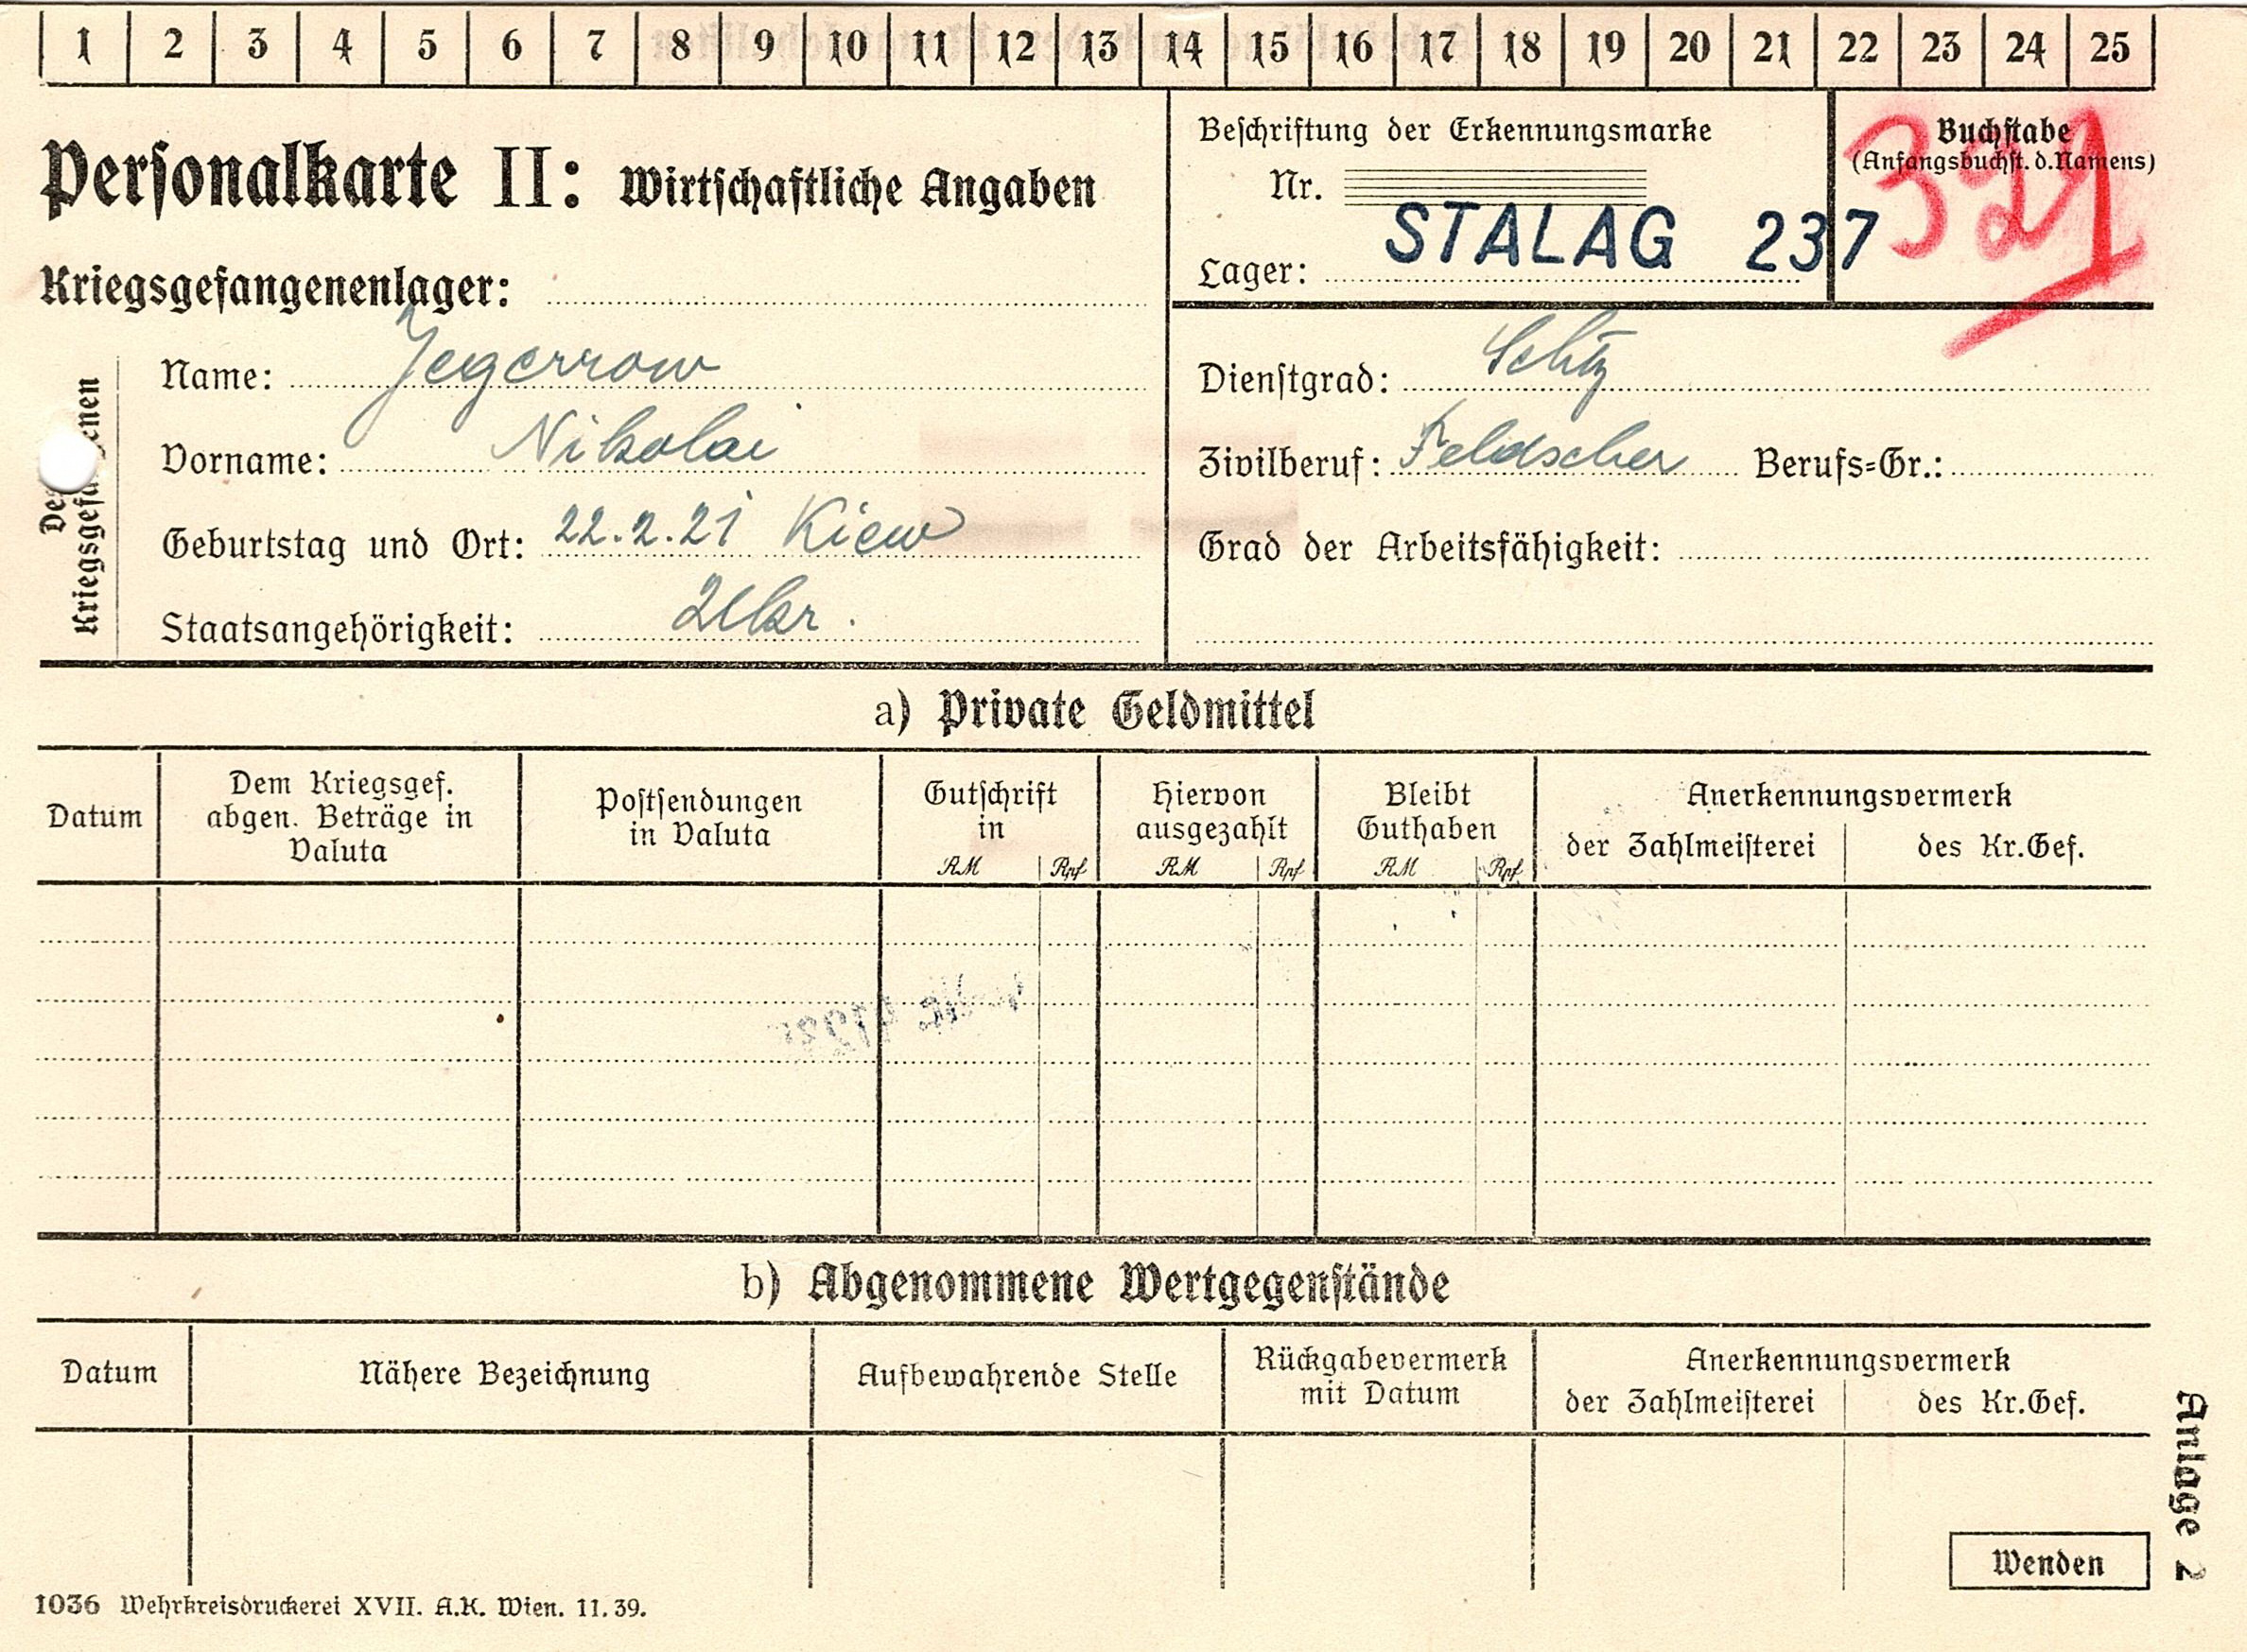 1 2 3 4 5 6 7 8 9 10 11 12 13 14 15 16 17 18 19 20 21 22 23 24 25
Personalkarte II: Wirtschaftliche Angaben
Kriegsgefangenenlager:
Beschriftung der Erkennungsmarke
Nr.
Lager: STALAG 237
Buchstabe
(Anfangsbuchst. d. Namens)
321
Des
Kriegsgefangenen
Name: Jegerrow
Vorname: Nikolai
Geburtstag und Ort: 22.2.21 Kiew
Staatsangehörigkeit: Ukr.
Dienstgrad: Schtz
Zivilberuf: Feldscher Berufs=Gr.:
Grad der Arbeitsfähigkeit:
a) Private Geldmittel
Datum
Dem Kriegsgef.
abgen. Beträge in
Valuta
Postsendungen
in Valuta
Gutschrift
in
RM Rpf
Hiervon
ausgezahlt
RM Rpf
Bleibt
Guthaben
RM Rpf
Anerkennungsvermerk
der Zahlmeisterei des Kr.Gef.
b) Abgenommene Wertgegenstände
Datum
Nähere Bezeichnung
Aufbewahrende Stelle
Rückgabevermerk
mit Datum
Anerkennungsvermerk
der Zahlmeisterei des Kr.Gef.
Anlage 2
Wenden
1036 Wehrkreisdruckerei XVII. A.K. Wien. 11.39.